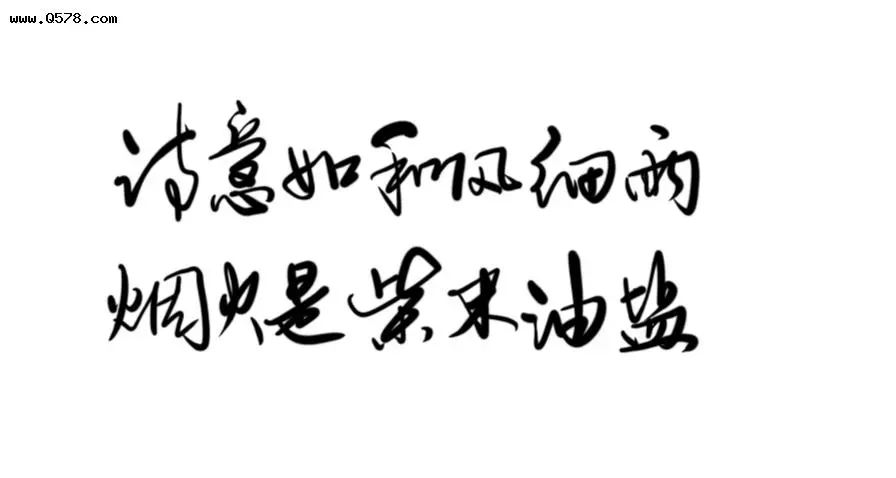 www.Q578.com
诗意如和风细雨
烟火是柴米油盐